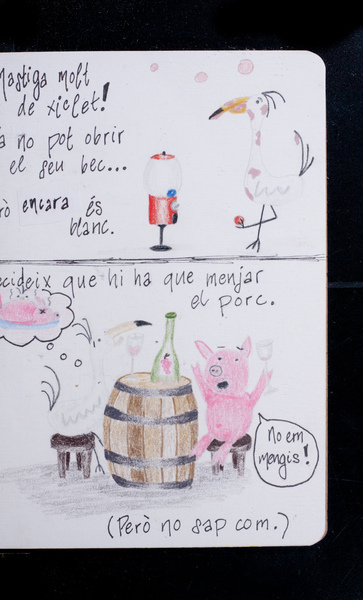 Mastiga molt
de xiclet!
no pot obrir
el seu bec...
encara és
blanc.
que hi ha que menjar
el porc.
No em
mengis!
(Però no sap com.)